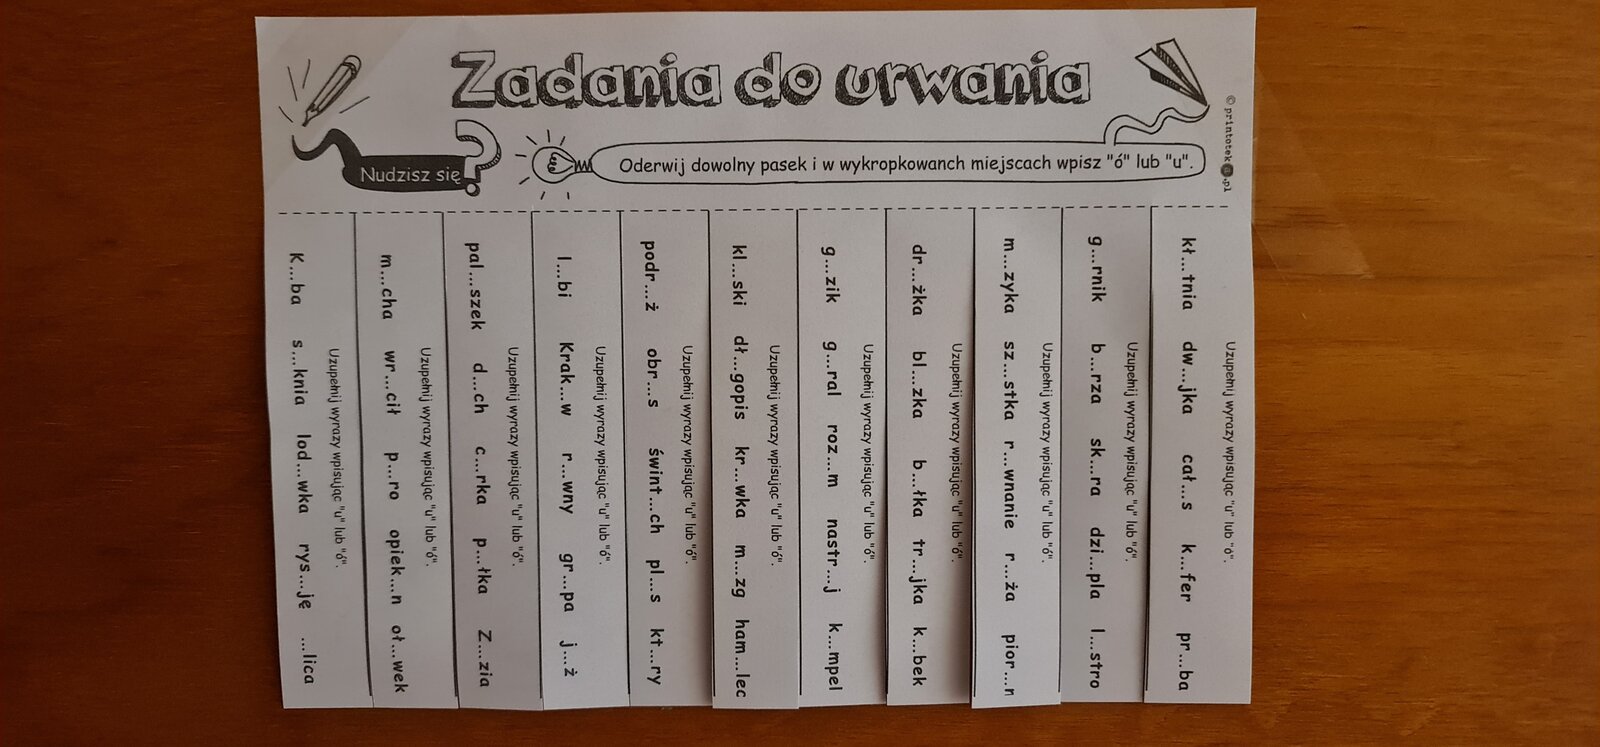 Zadania do urwania
© printoteka.pl
Nudzisz się?
Oderwij dowolny pasek i w wykropkowanch miejscach wpisz "ó" lub "u".
Uzupełnij wyrazy wpisując "u" lub "ó".
K...ba s...knia lod...wka rys...ję ...lica
Uzupełnij wyrazy wpisując "u" lub "ó".
m...cha wr...cił p...ro opiek...n oł...wek
Uzupełnij wyrazy wpisując "u" lub "ó".
pal...szek d...ch c...rka p...łka Z...zia
Uzupełnij wyrazy wpisując "u" lub "ó".
l...bi Krak...w r...wny gr...pa j...ż
Uzupełnij wyrazy wpisując "u" lub "ó".
podr...ż obr...s śwint...ch pl...s kt...ry
Uzupełnij wyrazy wpisując "u" lub "ó".
kl...ski dł...gopis kr...wka m...zg ham...lec
Uzupełnij wyrazy wpisując "u" lub "ó".
g...zik g...ral roz...m nastr...j k...mpel
Uzupełnij wyrazy wpisując "u" lub "ó".
dr...żka bl...zka b...łka tr...jka k...bek
Uzupełnij wyrazy wpisując "u" lub "ó".
m...zyka sz...stka r...wnanie r...ża pior...n
Uzupełnij wyrazy wpisując "u" lub "ó".
g...rnik b...rza sk...ra dzi...pla l...stro
Uzupełnij wyrazy wpisując "u" lub "ó".
kł...tnia dw...jka cał...s k...fer pr...ba